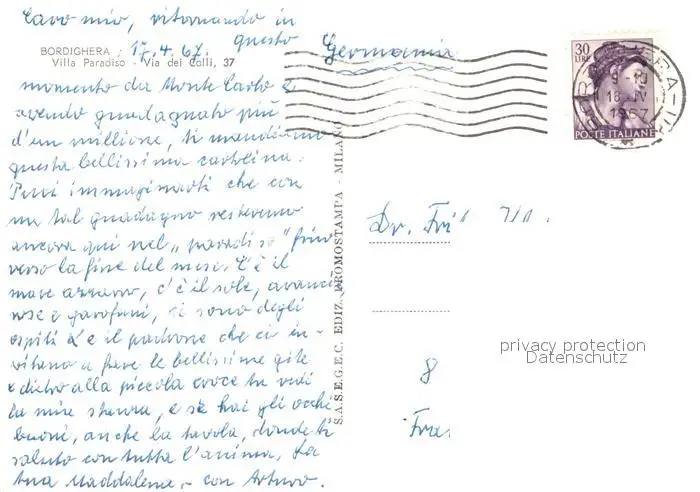 Caro mio, ritornando in
questo
BORDIGHERA : 17.4.67.
Villa Paradiso - Via dei Colli, 37
momento da Monte Carlo e
avendo guadagnato più
d'un millione, ti mandiamo
questa bellissima cartolina.
Puoi immaginarti che con
un tal guadagno resteremo
ancora qui nel „paradiso" fino
verso la fine del mese. C'è il
mare azzurro, c'è il sole, aranci
rose e garofani, ci sono degli
ospiti e il padrone che ci in-
vitano a fare le bellissime gite
e dietro alla piccola croce tu vedi
la mia stanza, e se hai gli occhi
buoni, anche la tavola, donde ti
saluto con tutta l'anima. La
tua Maddalena, - con Arturo.
S.A.S.E.G.E.C. EDIZ. PROMOSTAMPA - MILANO
Germania
30
LIRE
POSTE ITALIANE
9-10
18 IV
1967
Dr.
8
privacy protection
Datenschutz